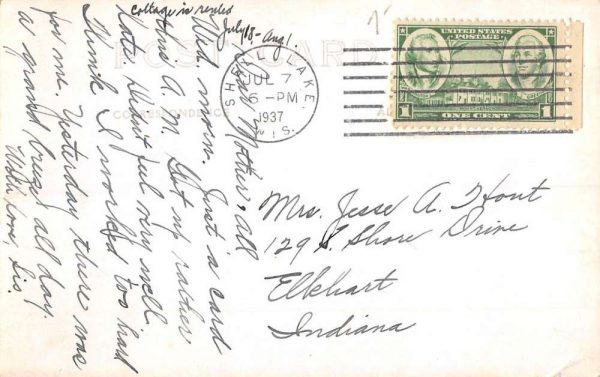 cottage is rented
July 18 - Aug 1
Dear Mother & all
Wed. morn. Just a card
this A.M. Got up rather
late. Didn't feel very well
Think I worked too hard
for me. Yesterday there was
a grand breeze all day.
With love, Sis.
POST CARD
CORRESPONDENCE
SHELL LAKE,
JUL 7
6-PM
1937
WIS.
UNITED STATES
POSTAGE
1 ONE CENT 1
Mrs. Jesse A. Hout
129 S. Shore Drive
Elkhart
Indiana